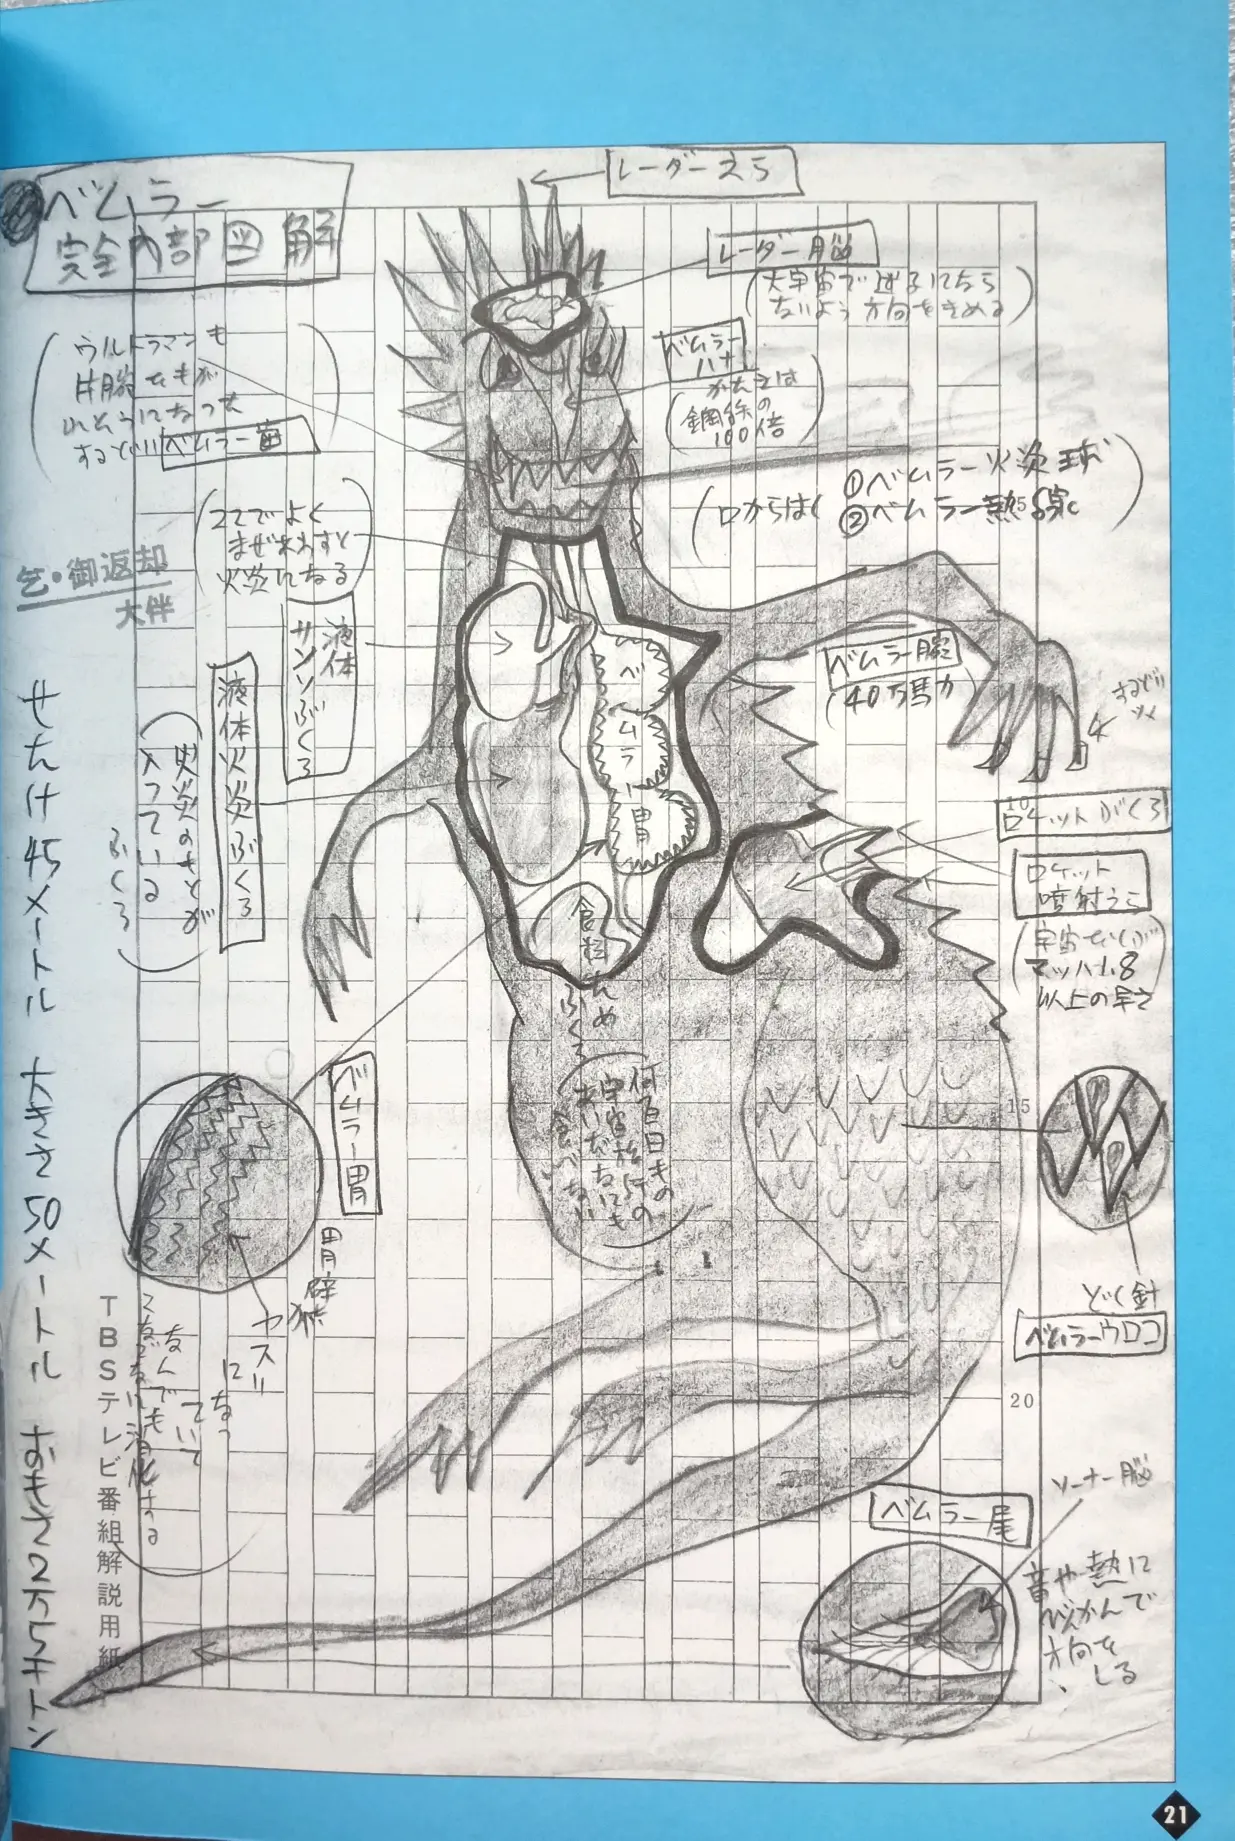 ベムラー
完全内部図解
レーダーえら
レーダー脳
(大宇宙で迷子になら
ないよう方向をきめる)
ベムラー
ハナ
(かたさは
鋼鉄の
100倍)
(ウルトラマンも
片腕をもが
れそうになった
するどい
ベムラー歯
(口からはく
①ベムラー火炎球
②ベムラー熱線)
(ここでよく
まぜあわすと
火炎になる)
乞・御返却
大伴
液体
サンソぶくろ
液体火炎ぶくろ
(火炎のもとが
入っている
ふくろ)
ベムラー胃
ベムラー腕
(40万馬力)
するどい
ツメ
ロケットぶくろ
ロケット
噴射えら
宇宙せんが
マッハ1.8
以上の早さ
食料ためぶくろ
何百日もの
宇宙旅行の
あいだなにも
食べない
15
どく針
ベムラーウロコ
ベムラー胃
胃壁が
ヤスリ
になっ
ていて
なんでも
こなごなに消化する
20
ソーナー脳
ベムラー尾
音や熱に
びんかんで
方向を
しる
せたけ45メートル 大きさ50メートル おもさ2万5千トン
TBSテレビ番組解説用紙
21